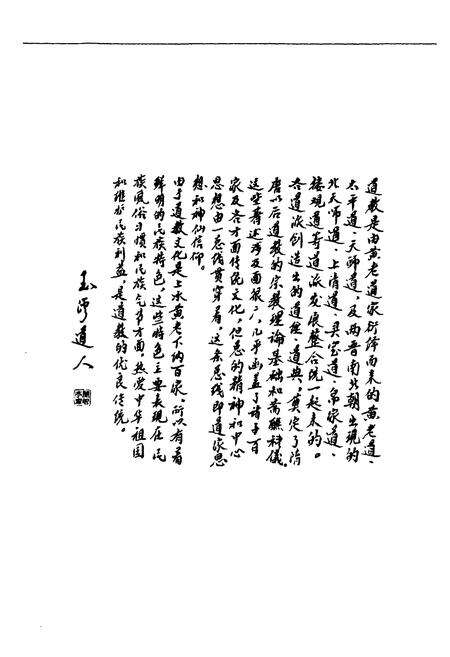 道教是由黄老道家衍绎而来的黄老道、
太平道、天师道，及两晋南北朝出现的
北天师道、上清道、灵宝道、帛家道、
楼观道等道派发展整合统一起来的。
各道派创造出的道经、道典，奠定了隋
唐以后道教的宗教理论基础和斋醮科仪。
这些著述涉及面很广，几乎函盖了诸子百
家及各方面传统文化，但总的精神和中心
思想由一总线贯穿着，这条总线即道家思
想和神仙信仰。
由于道教文化是上承黄老下纳百家，所以有着
鲜明的民族特色，这些特色主要表现在民
族风俗习惯和民族气节方面，热爱中华祖国
和维护民族利益，是道教的优良传统。
玉溪道人